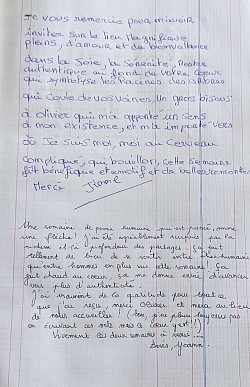 Je vous remercie pour m'avoir
inviter sur le lieu Magnifique
pleins, d'amour et de bienveillance
dans la Joie, la Sérénité, Restez
authentique au fond de votre coeur
qui symbolyse les Racines des arbres
qui coule de vos veines. Un gros bisous
à olivier qui m'a apporté un sens
à mon existence, et m'a importé vers
où je suis moi, moi au cerveau
compliqué, qui bouillon, cette semaine
fût bénéfique et motif et de belles rencontres
Merci
Une semaine de pure humaine qui est passé, comme
une flèche! J'ai été agréablement surpris par la
et la profondeur des partages. Ça fait
tellement de bien de se sentir entre être-humains
qu'entre hommes en plus cette semaine! Ça
fait chaud au coeur, ça me donne envie d'avancer
vers plus d'authenticité.
J'ai vraiment de la gratitude pour tout ce
que j'ai reçu, merci Olivier et merci au lieu
de nous accueillir!
en écrivant ces mots mais le coeur y est!!)
Vivement les deux semaines à venir...